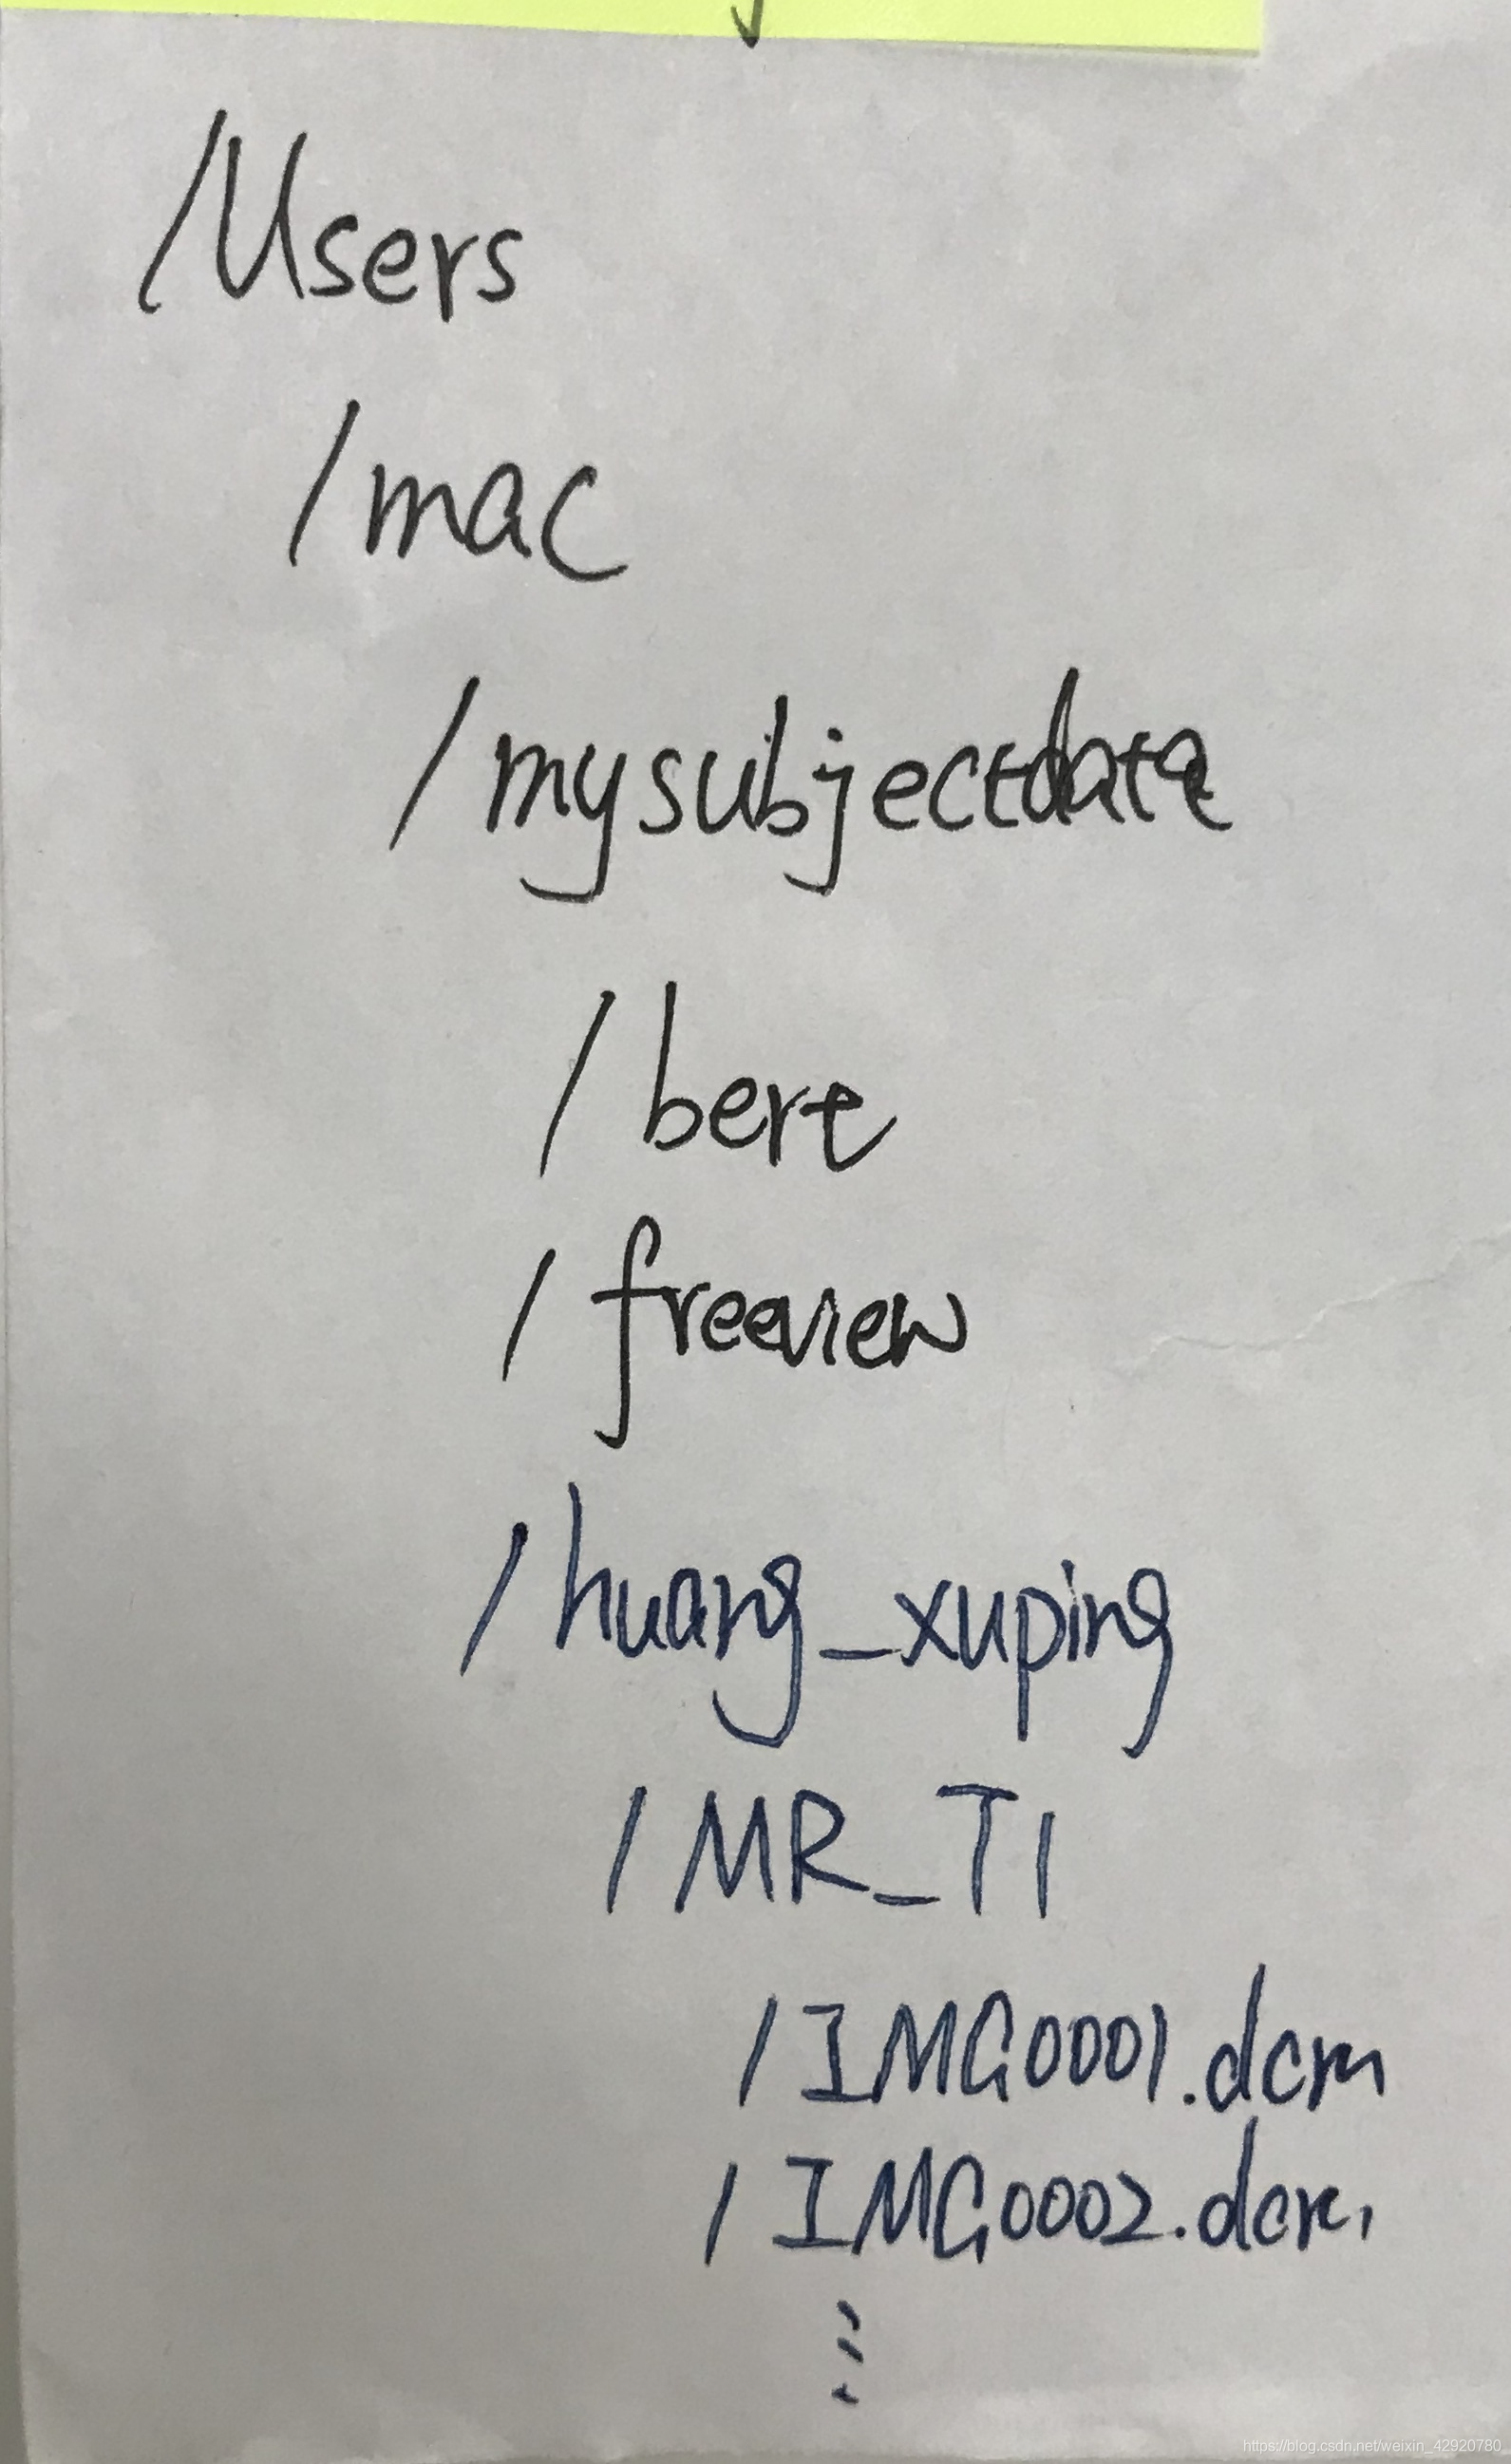 /Users
/mac
/mysubjectdata
/bert
/freeview
/huang_xuping
/MR_T1
/IMG0001.dcm
/IMG0002.dcm
⋮
https://blog.csdn.net/weixin_42920780